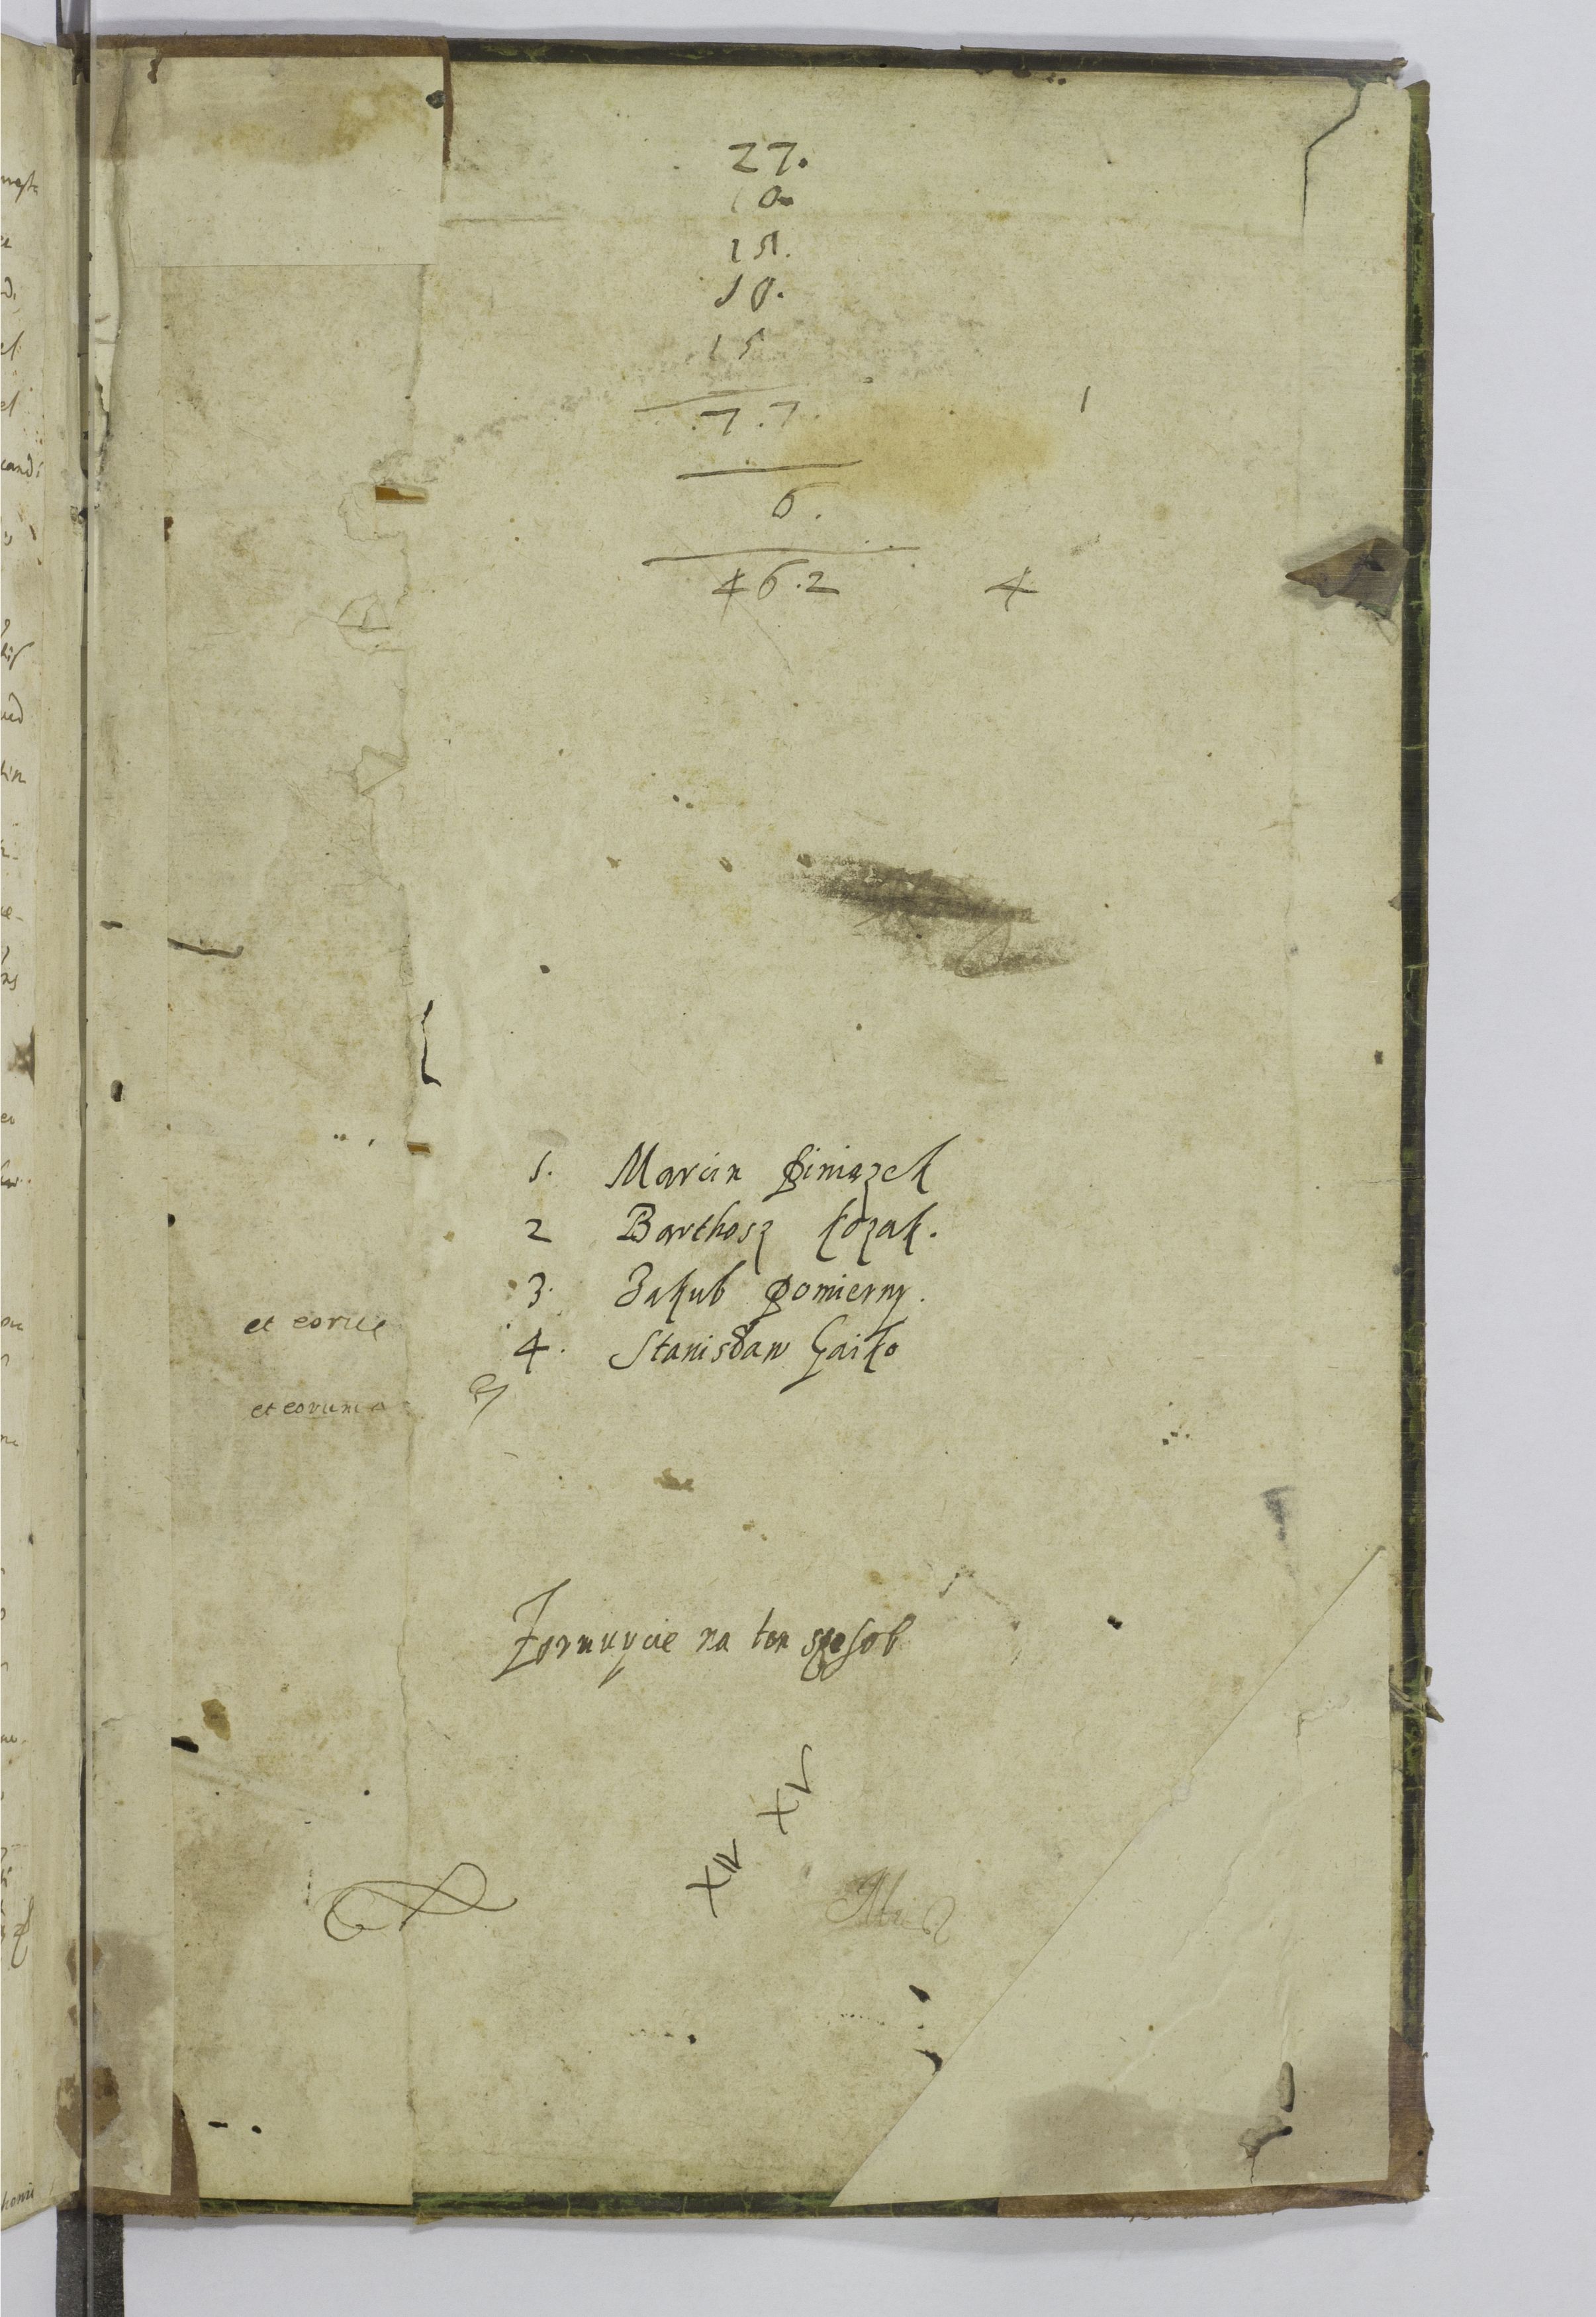 27.
10.
15.
10.
15
7.7.
6.
46.2 4
1. Marcin Piniązek
2 Barthosz kozak.
3. Jakub Pomierny.
4. Stanisław Gaiko
et eorum
na ten sposob
XIV XV